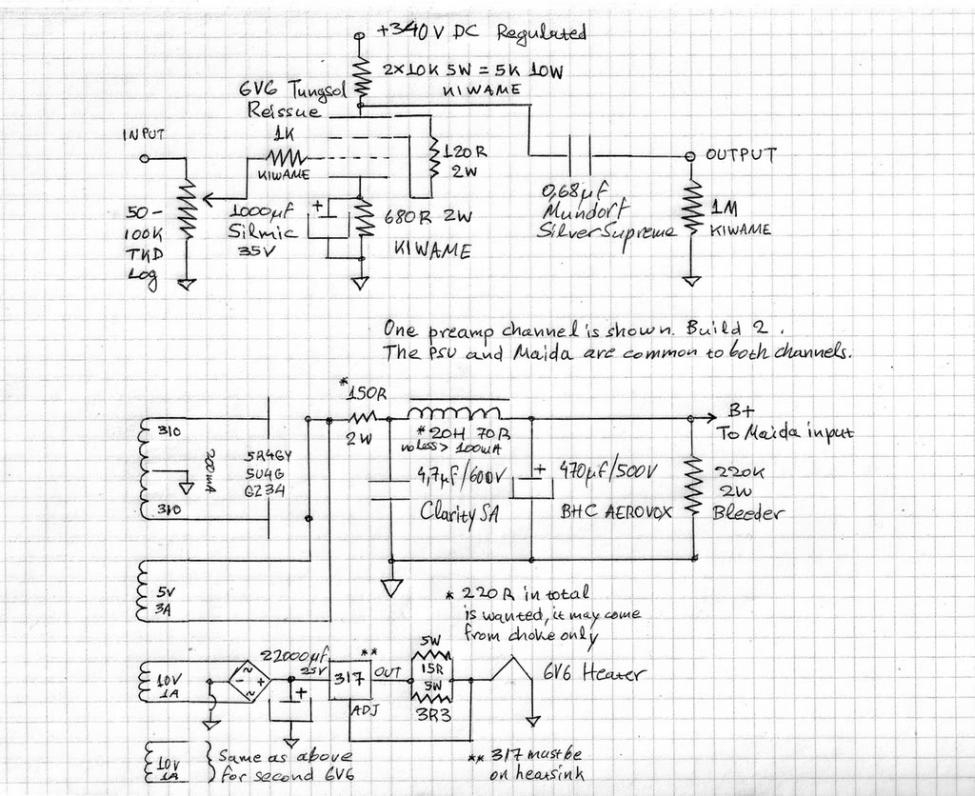 +340V DC Regulated
2x10K 5W = 5K 10W
KIWAME
6V6 Tungsol
Reissue
INPUT
1K
KIWAME
120R
2W
OUTPUT
50-
100K
TKD
Log
+
1000µF
Silmic
35V
680R 2W
KIWAME
0,68µF
Mundorf
SilverSupreme
1M
KIWAME
One preamp channel is shown. Build 2.
The PSU and Maida are common to both channels.
*150R
2W
B+
To Maida input
310
200mA
310
5R4GY
5U4G
GZ34
*20H 70R
no less > 100mA
4,7µF/600V
Clarity SA
+
470µF/500V
BHC AEROVOX
220K
2W
Bleeder
5V
3A
* 220R in total
is wanted, it may come
from choke only
10V
1A
~
- +
~
22000µF
25V
+
**
317
OUT
ADJ
5W
15R
5W
3R3
6V6 Heater
10V
1A
Same as above
for second 6V6
** 317 must be
on heatsink